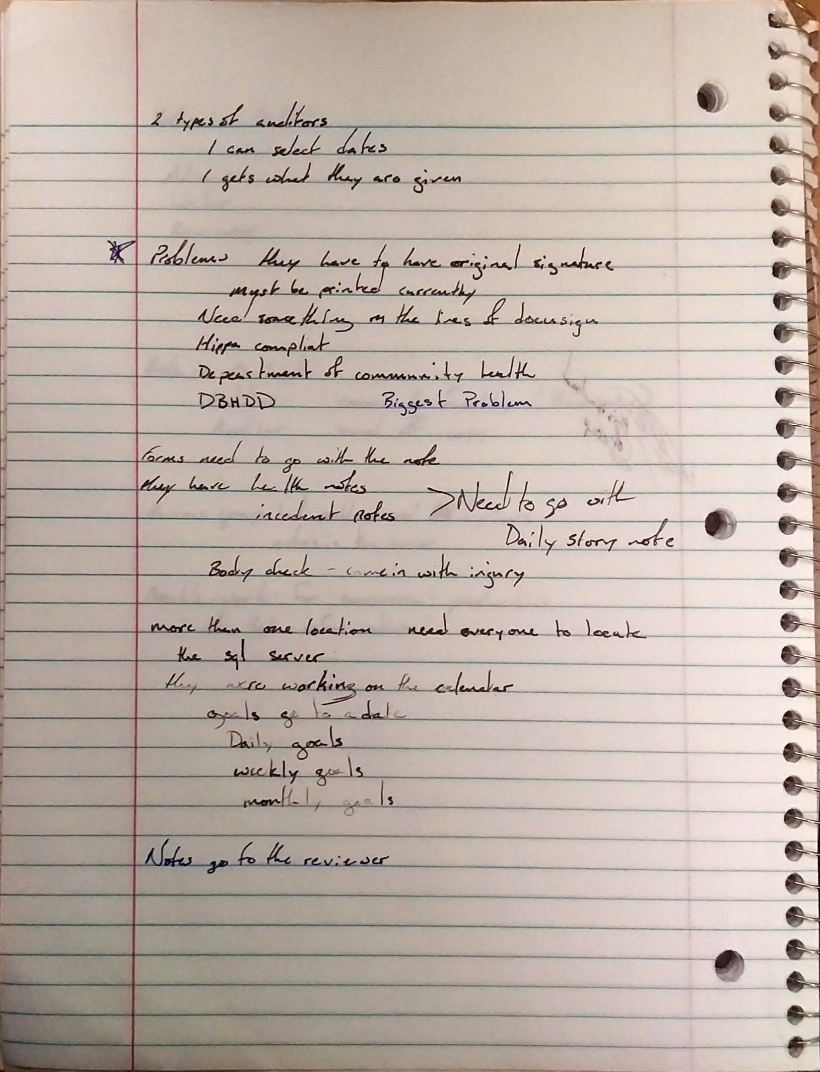 2 types of auditors
1 can select dates
1 gets what they are given
Problems they have to have original signature
must be printed currently
Need something on the lines of docusign
Hippa compliat
Depeartment of community health
DBHDD Biggest Problem
Forms need to go with the note
they have health notes
incedent notes >Need to go with
Daily story note
Body check - came in with injury
more than one location need everyone to locate
the sql server
they were working on the calendar
goals go to a date
Daily goals
weekly goals
monthly goals
Notes go to the reviewer